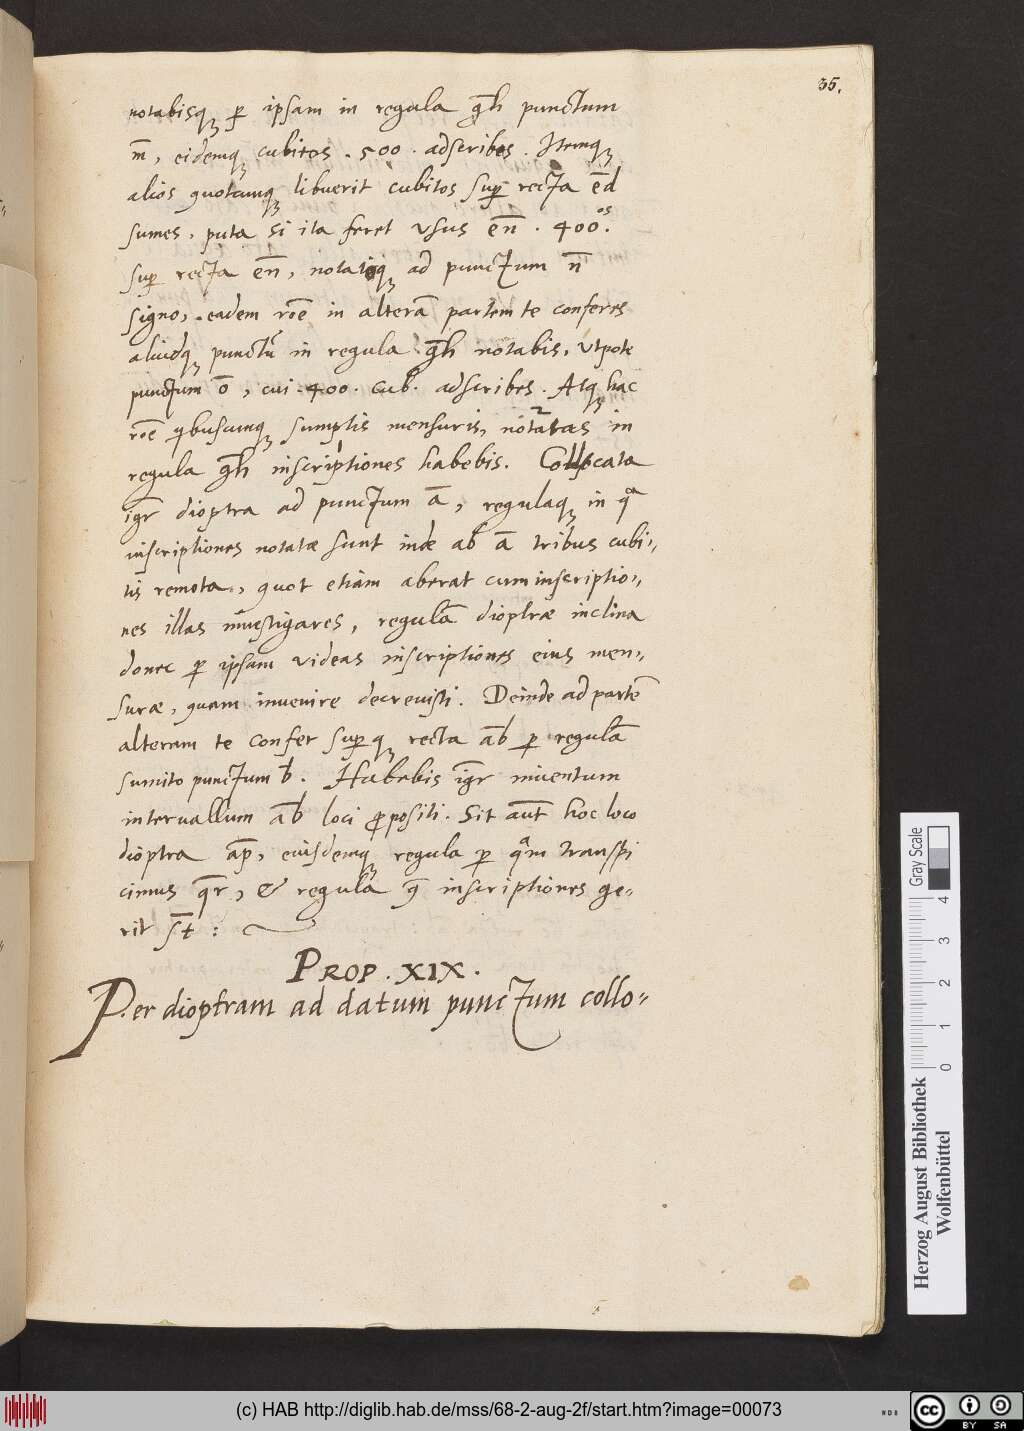 35.
notabisqꝫ ꝑ ipsam in regula g̅h punctum
m̅, eidemqꝫ cubitos . 500 . adscribes . Itemqꝫ
alios quotcumqꝫ libuerit cubitos sup̱ recta e̅d
sumes, puta si ita feret vsus e̅n . 400.os
sup̱ recta e̅n, notatoqꝫ ad punctum n̅
signo, eadem rōe in alterā partem te conferes
aliudqꝫ punctū in regula g̅h notabis, Vtpote
punctum o̅, cui . 400 . cub . adscribes . Atqꝫ hac
rōe qibuscumqꝫ sumptis mensuris, notatas in
regula g̅h inscriptiones habebis. Collocata
igr̄ dioptra ad punctum a̅, regulaqꝫ in qa
inscriptiones notatæ sunt inde ab a̅ tribus cubi-
tis remota, quot etiam aberat cum inscriptio-
nes illas inuestigares, regulā dioptræ inclina
donec ꝑ ipsam videas inscriptiones eius men-
suræ, quam inuenire decreuisti. Deinde ad partē
alteram te confer sup̱qꝫ recta a̅b ꝑ regulā
sumito punctum b̅. Habebis igr̄ inuentum
interuallum a̅b loci ꝓpositi. Sit aut̄ hoc loco
dioptra a̅p, eiusdemqꝫ regula ꝑ qam transpi
cimus q̅r, & regula q̄ inscriptiones ge-
rit s̅t :
PROP . XIX .
Per dioptram ad datum punctum collo-
Herzog August Bibliothek
Wolfenbüttel
0 1 2 3 4
Gray Scale
(c) HAB http://diglib.hab.de/mss/68-2-aug-2f/start.htm?image=00073
cc BY SA